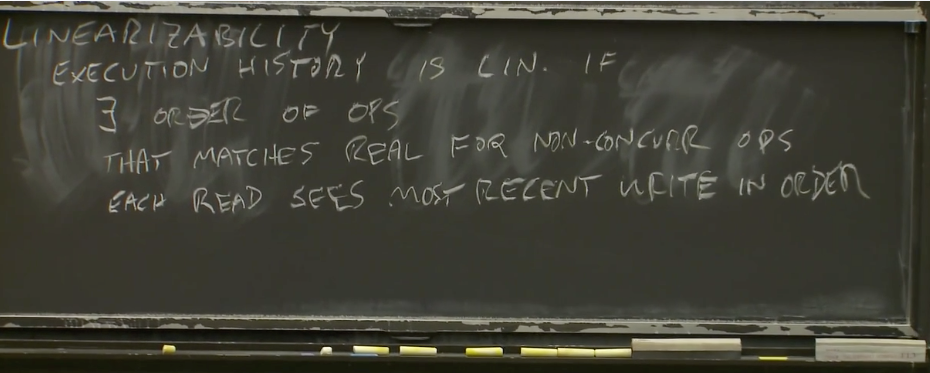 LINEARIZABILITY
EXECUTION HISTORY IS LIN. IF
∃ ORDER OF OPS
THAT MATCHES REAL FOR NON-CONCURR OPS
EACH READ SEES MOST RECENT WRITE IN ORDER